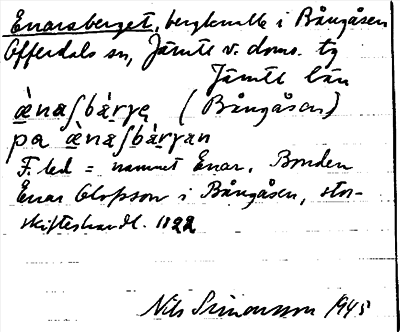 Enarsberget, bergkulle i Bångåsen
Offerdals sn, Jämtl. v. doms. tg
Jämtl län
æ̀naʃbæ̀rγę (Bångåsen)
pa æ̀naʃbàrγan
F. led = namnet Enar. Bonden
Enar Olofsson i Bångåsen, stor-
skifteshandl. 1822
Nils Simonsson 1945